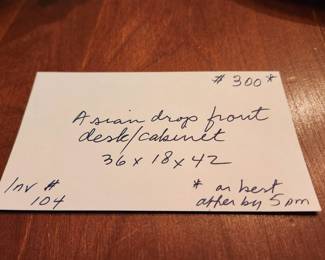 # 300*
Asian drop front
desk/cabinet
36 x 18 x 42
Inv #
104
* or best
offer by 5pm